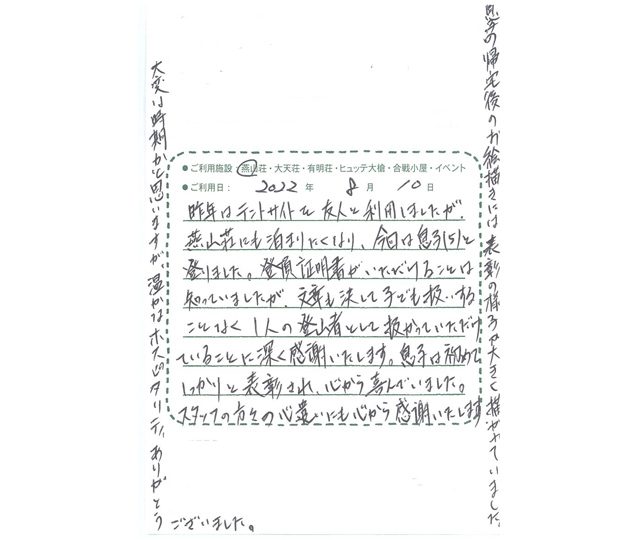 ●ご利用施設：燕山荘・大天荘・有明荘・ヒュッテ大槍・合戦小屋・イベント
●ご利用日： 2022 年 8 月 10 日
昨年はテントサイトを友人と利用しましたが、
燕山荘にも泊まりたくなり、今回は息子(5)と
登りました。登頂証明書がいただけることは
知っていましたが、文章も決して子ども扱いする
ことなく1人の登山者として扱かっていただけ
ていることに深く感謝いたします。息子は初めて
しっかりと表彰され、心から喜んでいました。
スタッフの方々の心遣いにも心から感謝いたします
息子の帰宅後のお絵描きには表彰の様子が大きく描かれていました。
大変な時期かと思いますが、温かなホスピタリティ、ありがとう
ございました。